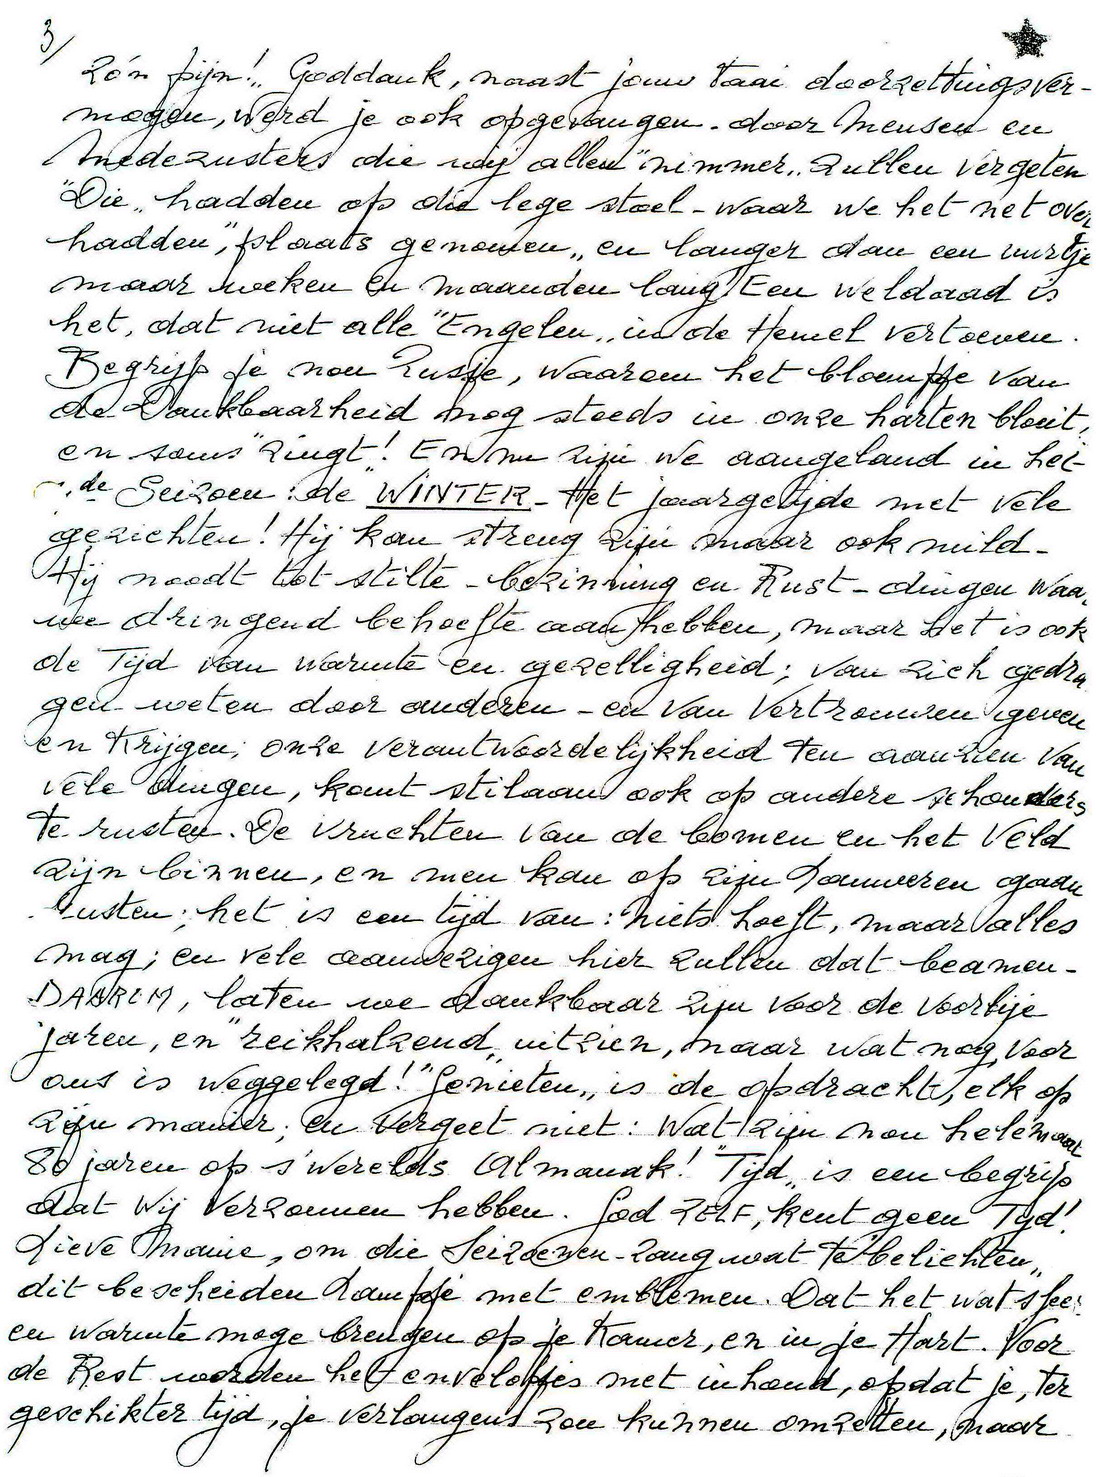 3/
zó'n pijn!.. Goddank, naast jouw taai doorzettingsver-
mogen, werd je ook opgevangen. door Mensen en
Medezusters die wij allen "nimmer.. zullen vergeten
"Die.. hadden op die lege stoel - waar we het net over
hadden", plaats genomen,, en langer dan een uurtje
maar weken en maanden lang! Een weldaad is
het, dat niet alle "Engelen,, in de Hemel vertoeven.
Begrijp je nou Zusje, waarom het bloempje van
de Dankbaarheid nog steeds in onze harten bloeit,
en soms "zingt"! En nu zijn we aangeland in het
de Seizoen: de "WINTER - Het jaargetijde met vele
gezichten! Hij kan streng zijn maar ook mild -
Hij noodt tot stilte - bezinning en Rust - dingen waar
we dringend behoefte aan hebben, maar het is ook
de Tijd van warmte en gezelligheid; van zich gedra
gen weten door anderen - en van Vertrouwen geven
en Krijgen; onze verantwoordelijkheid ten aanzien van
vele dingen, komt stilaan ook op andere schouders
te rusten. De vruchten van de bomen en het Veld
zijn binnen, en men kan op zijn Lauweren gaan
rusten; het is een tijd van: niets hoeft, maar alles
mag; en vele aanwezigen hier zullen dat beamen -
DAAROM, laten we dankbaar zijn voor de voorbije
jaren, en "reikhalzend,, uitzien, naar wat nog, voor
ons is weggelegd! "Genieten,, is de opdracht, elk op
zijn manier; en vergeet niet: Wat zijn nou helemaal
80 jaren op s'werelds Almanak! "Tijd,, is een begrip
dat wij verzonnen hebben. God ZELF, kent geen Tijd!
Lieve Maine, om die Seizoenen-zang wat te "belichten,,
dit bescheiden Lampje met emblemen. Dat het wat sfeer
en warmte moge brengen op je Kamer, en in je Hart. Voor
de Rest worden het envelopjes met inhoud, opdat je, ter
geschikter tijd, je verlangens zou kunnen omzetten, maar